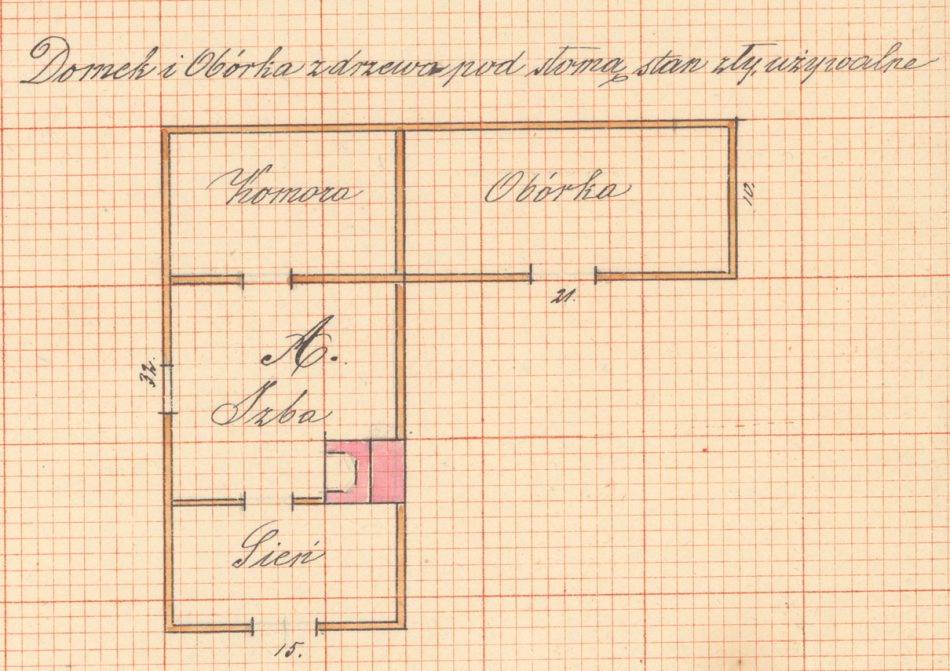 Domek i Obórka z drzewa pod słomą, stan zły, używalne
Komora
Obórka
10.
21.
A.
32.
Izba
Sień
15.